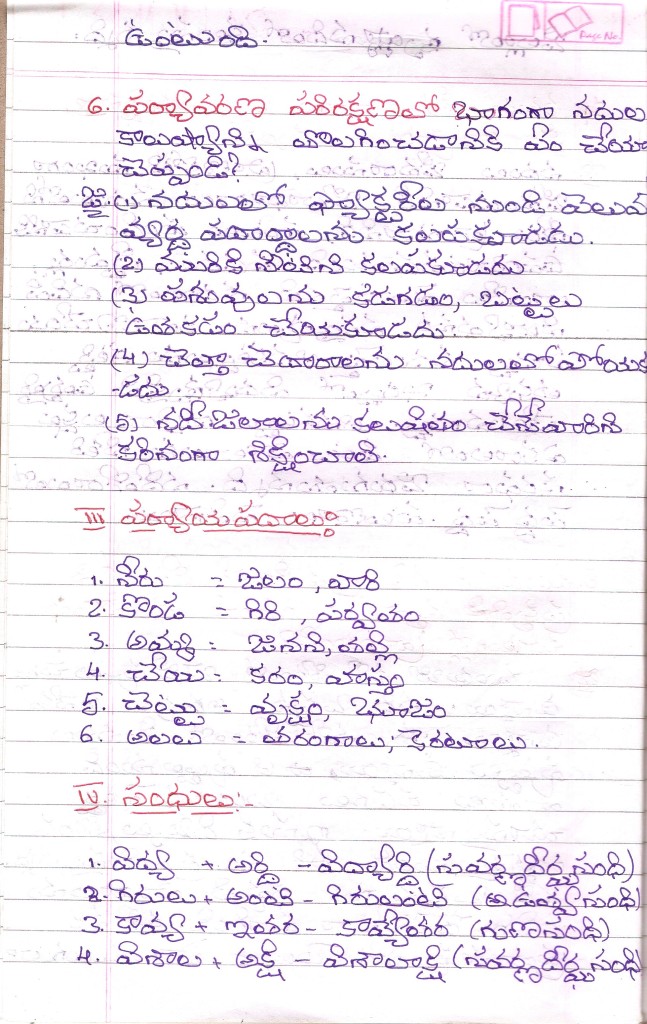 ఉంటుంది.
Page No.
6. పర్యావరణ పరిరక్షణలో భాగంగా నదుల
కాలుష్యాన్ని తొలగించడానికి ఏం చేయా
చెప్పండి?
జ. (1) నదులలో ఫ్యాక్టరీల నుండి వెలువ
వ్యర్థ పదార్థాలను కలుపకూడదు.
(2) మురికి నీటిని కలుపకూడదు
(3) పశువులను కడగడం, బట్టలు
ఉతకడం చేయకూడదు
(4) చెత్తా చెదారాలను నదులలో పోయకూ
-డదు.
(5) నదీ జలాలను కలుషితం చేసేవారిని
కఠినంగా శిక్షించాలి.
III పర్యాయపదాలు:
1. నీరు = జలం, వారి
2. కొండ = గిరి, పర్వతం
3. అమ్మ = జనని, తల్లి
4. చేయి = కరం, హస్తం
5. చెట్టు = వృక్షం, భూజం
6. అలలు = తరంగాలు, కెరటాలు.
IV. సంధులు:-
1. విద్య + అర్థి - విద్యార్థి (సవర్ణదీర్ఘ సంధి)
2. గిరులు + అంతటి - గిరులంతటి (అ, ఉత్వసంధి)
3. కావ్య + ఇతర - కావ్యేతర (గుణసంధి)
4. విశాల + అక్షి - విశాలాక్షి (సవర్ణదీర్ఘ సంధి